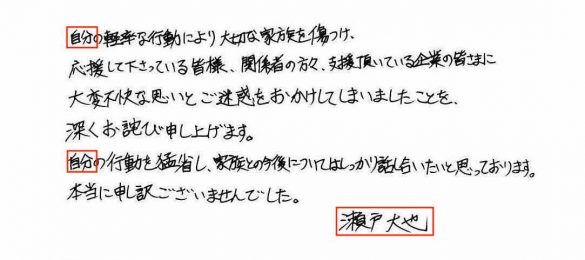 自分の軽率な行動により大切な家族を傷つけ、
応援して下さっている皆様、関係者の方々、支援頂いている企業の皆さまに
大変不快な思いとご迷惑をおかけしてしまいましたことを、
深くお詫び申し上げます。
自分の行動を猛省し、家族との今後についてはしっかり話し合いたいと思っております。
本当に申し訳ございませんでした。
瀬戸大也